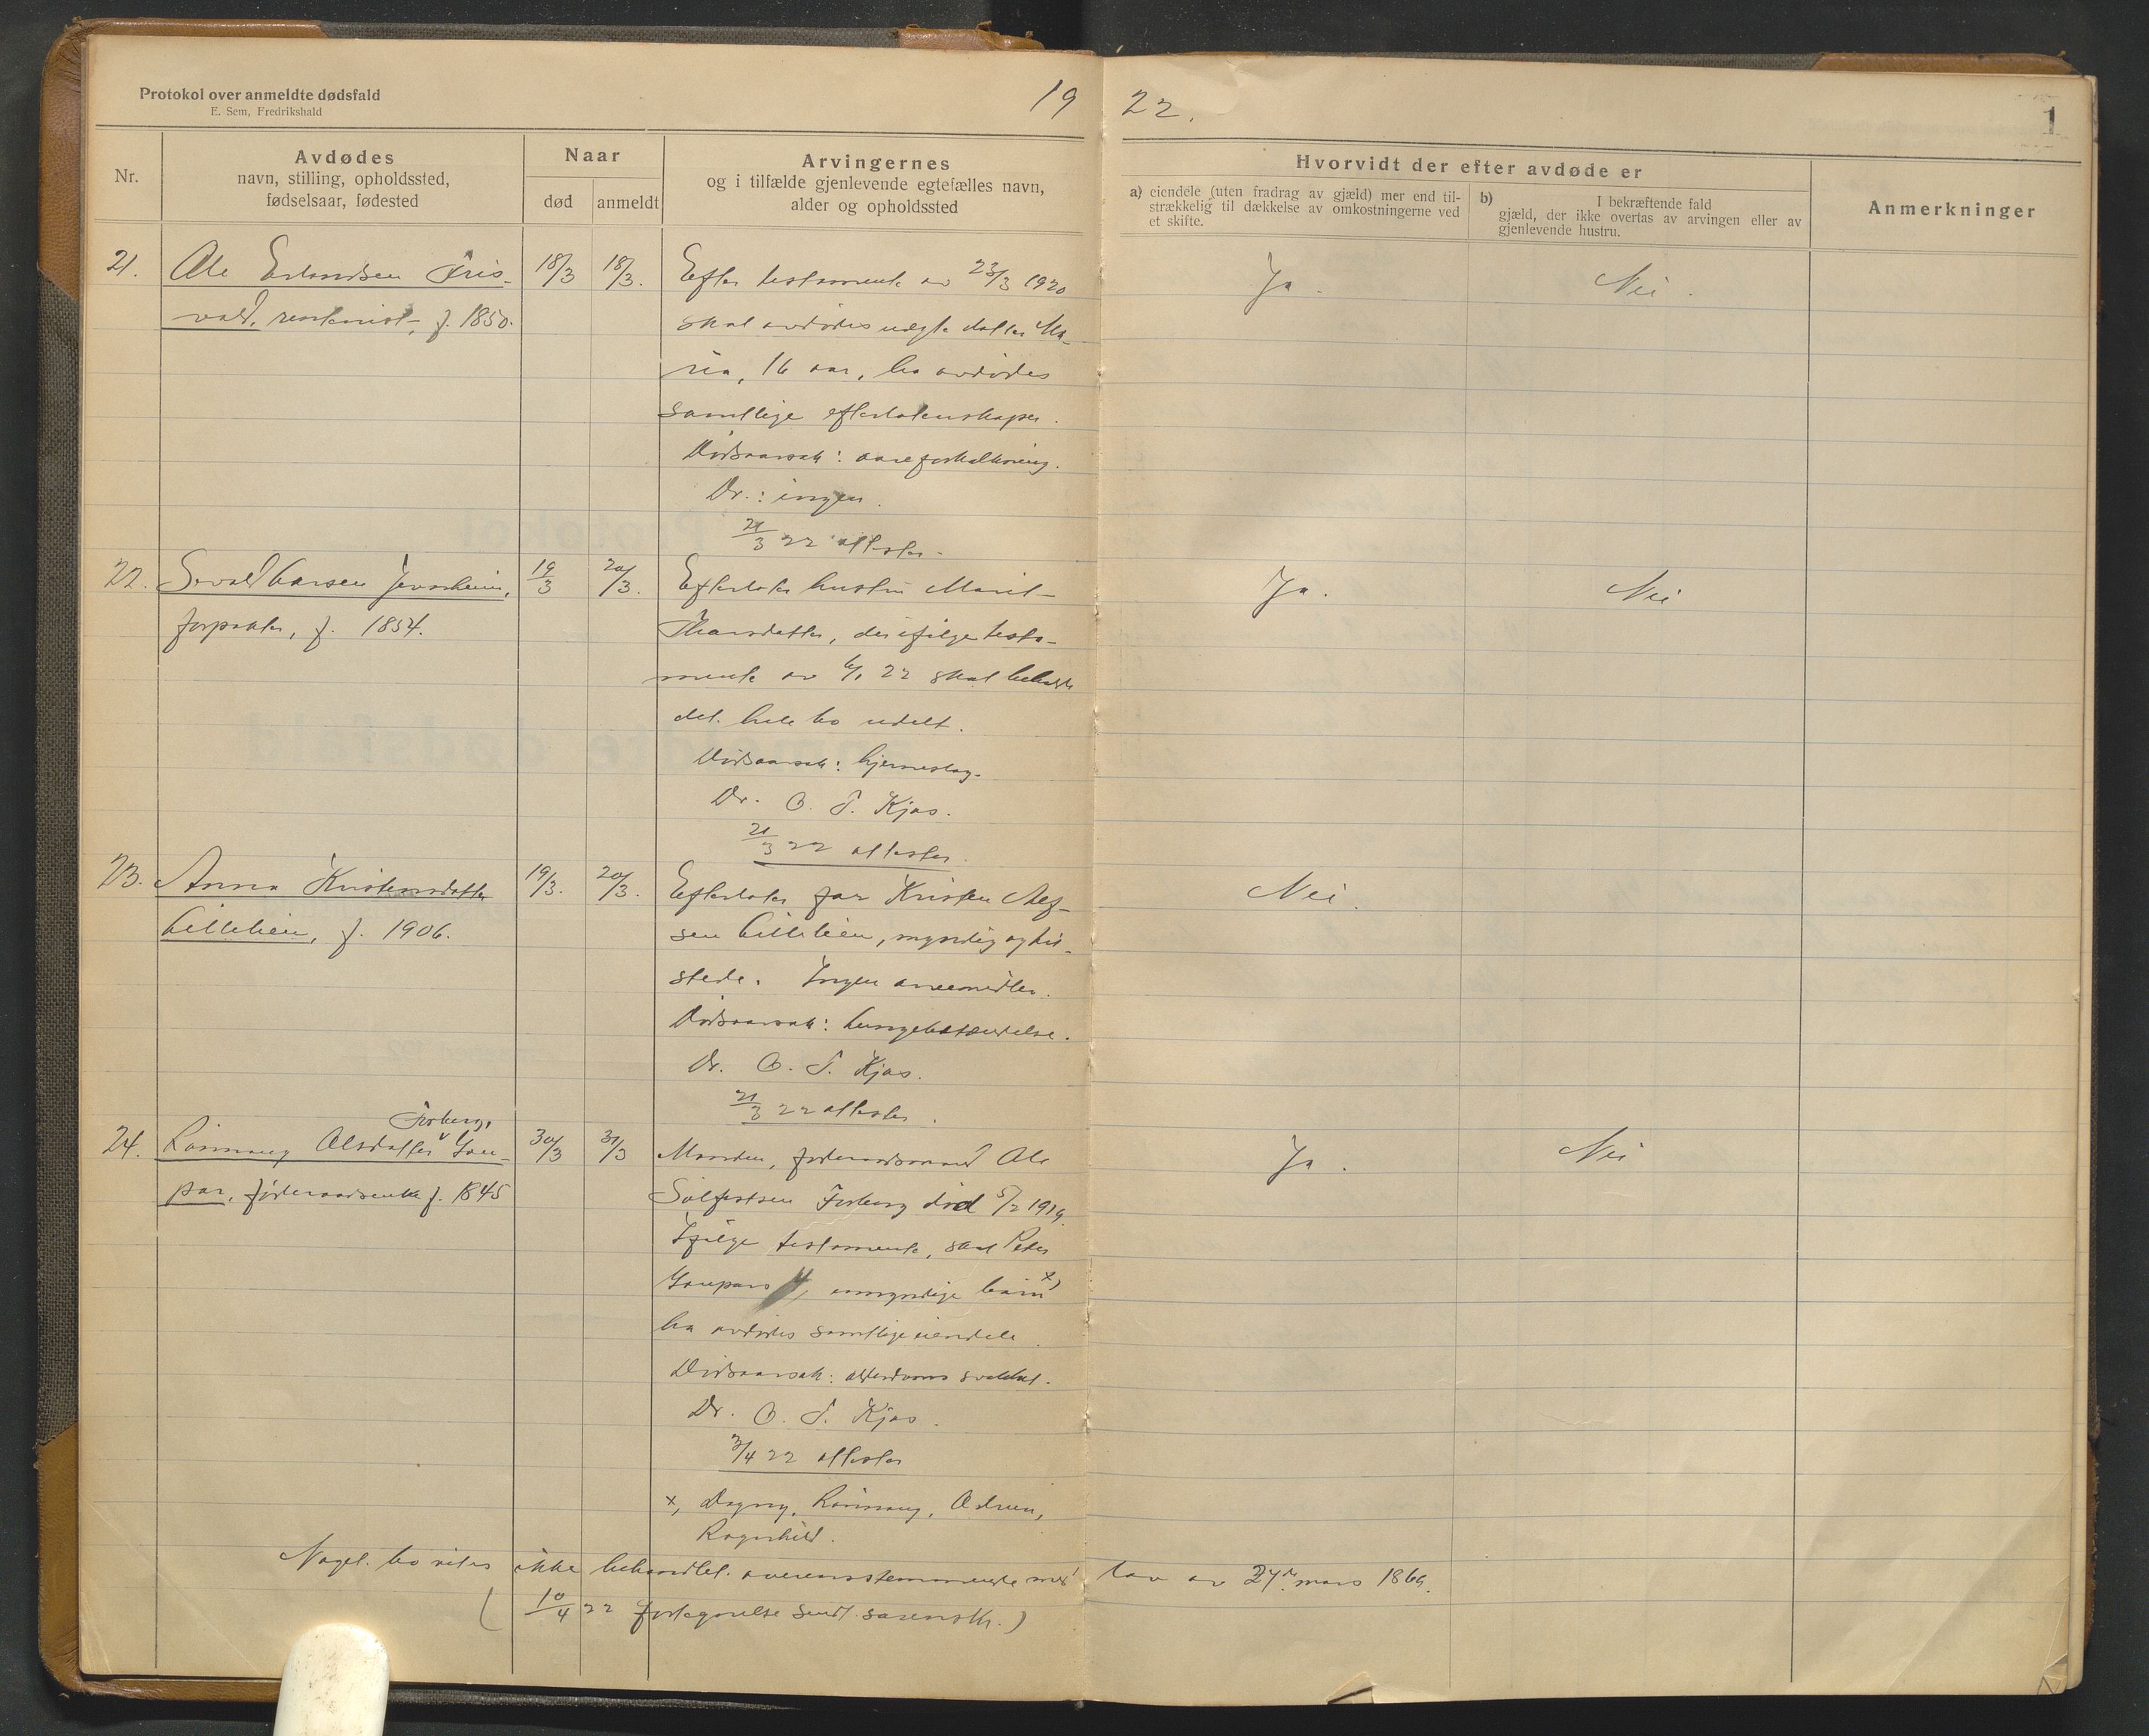 Protokol over anmeldte dødsfald
E. Sem, Fredrikshald
19 22.
1
Nr.
Avdødes
navn, stilling, opholdssted,
fødselsaar, fødested
Naar
død
anmeldt
Arvingernes
og i tilfælde gjenlevende egtefælles navn,
alder og opholdssted
Hvorvidt der efter avdøde er
a) eiendele (uten fradrag av gjæld) mer end til-
strækkelig til dækkelse av omkostningerne ved
et skifte.
b) I bekræftende fald
gjæld, der ikke overtas av arvingen eller av
gjenlevende hustru.
Anmerkninger
21. Ole Erlandsen Fris-
vold, rentenist, f. 1850.
18/3 18/3.
Efter testamente av 23/3 1920
skal avdødes uegte datter Ma-
ria, 16 aar, ha avdødes
samtlige efterlatenskaper.
Dødsaarsak: aareforkalkning.
Dr.: ingen.
21/3 22 attester.
Ja. Nei.
22. Sevald Larsen
forpakter, f. 1854.
19/3 20/3.
Efterlater hustru Marit
Thorsdatter, der ifølge testa-
mente av 6/1 22 skal beholde
det hele bo udelt.
Dødsaarsak: hjerneslag.
Dr. O. T. Kjos.
21/3 22 attester.
Ja. Nei
23. Anna Kristensdatter
Lillelien, f. 1906.
19/3. 20/3.
Efterlater far Kristen
sen Lillelien, myndig og tils-
stede. Ingen arvemidler.
Dødsaarsak: lungebetændelse.
Dr. O. T. Kjos.
21/3 22 attester.
Nei.
Forberg,
24. Rønnaug Olsdatter Gau-
par, føderaadsenke f. 1845
30/3 31/3
Manden, føderaadsmand Ole
Solfestsen Forberg død 5/2 1919.
Ifølge testamente, skal Peder
Gaupars 4 umyndige børn x)
ha avdødes samtlige eiendele.
Dødsaarsak: alderdoms svakhet.
Dr. O. T. Kjos.
3/4 22 attester
x, Dagny, Rønnaug, Odrun,
Ragnhild.
Ja. Nei
Nogel. bo vites ikke behandlet overensstemmende med lov av 27de mars 1869.
( 10/4 22 fortegnelse sendt sorenskr.)